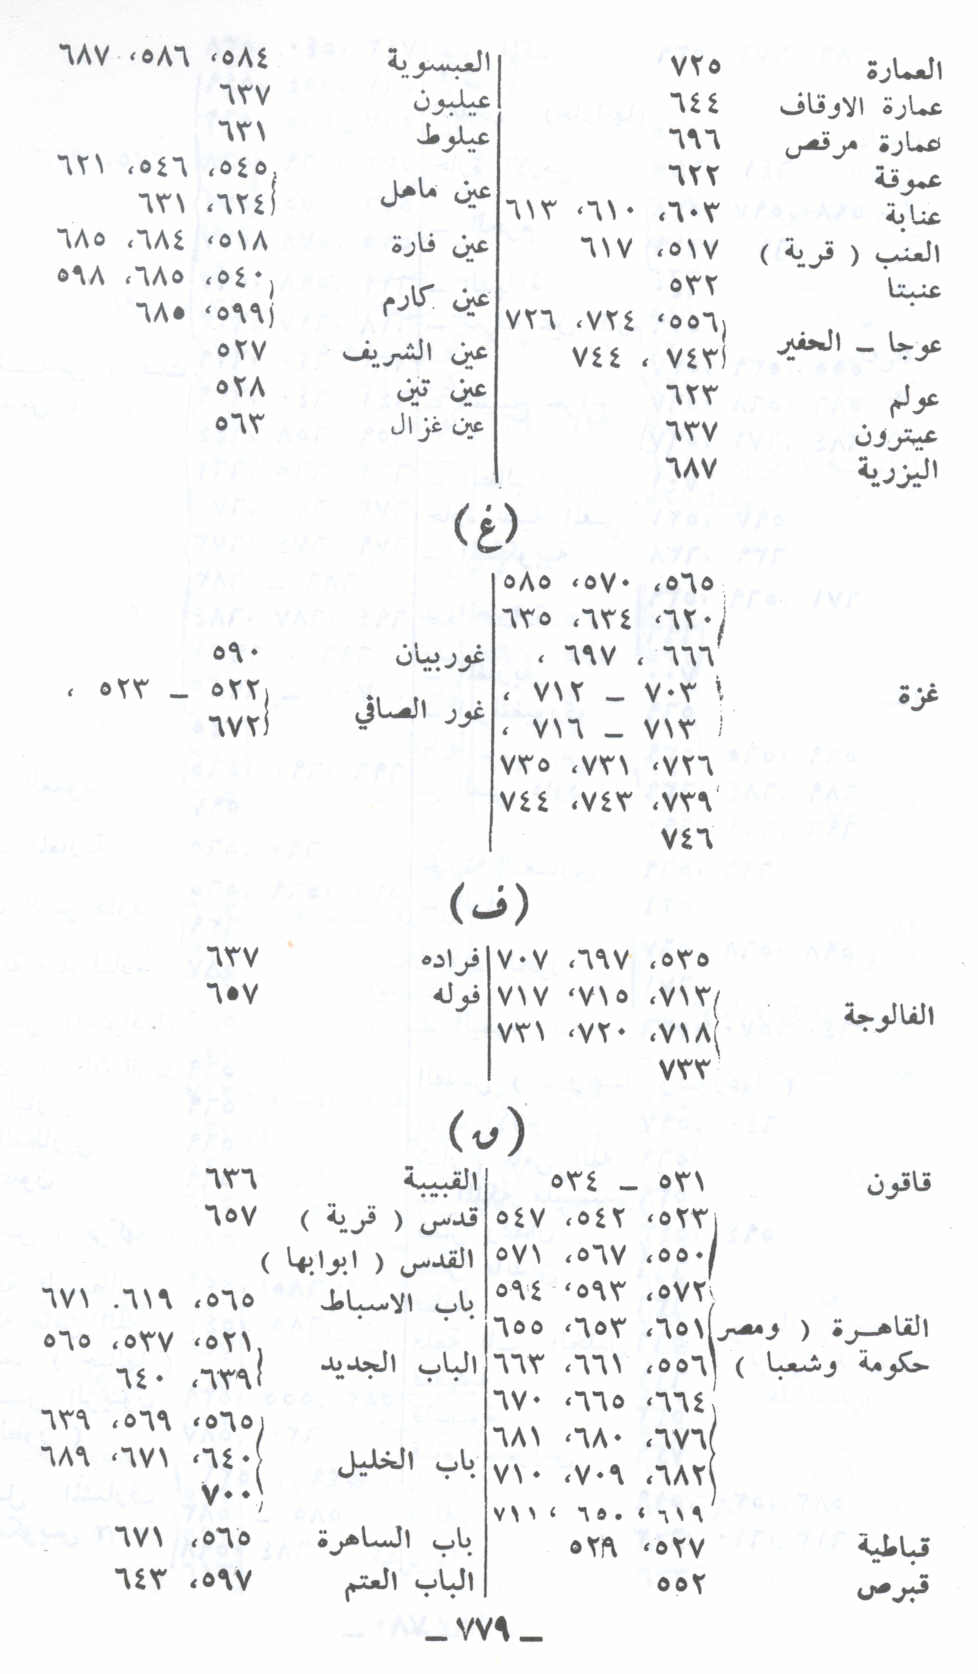 العمارة ٧٢٥
عمارة الاوقاف ٦٤٤
عمارة مرقص ٦٩٦
عموقة ٦٢٢
عنابة ٦٠٣، ٦١٠، ٦١٣
العنب ( قرية ) ٥١٧، ٦١٧
عنبتا ٥٣٢
عوجا ـ الحفير ٥٥٦، ٧٢٤، ٧٢٦
٧٤٣ ، ٧٤٤
عولم ٦٢٣
عيترون ٦٣٧
اليزرية ٦٨٧
العبسوية ٥٨٤، ٥٨٦، ٦٨٧
عيلبون ٦٣٧
عيلوط ٦٣١
عين ماهل ٥٤٥، ٥٤٦، ٦٢١
٦٢٤، ٦٣١
عين فارة ٥١٨، ٦٨٤، ٦٨٥
عين كارم ٥٤٠، ٦٨٥، ٥٩٨
٥٩٩، ٦٨٥
عين الشريف ٥٢٧
عين تين ٥٢٨
عين غزال ٥٦٣
(غ)
غزة ٥٦٥، ٥٧٠، ٥٨٥
٦٢٠، ٦٣٤، ٦٣٥
٦٦٦ ، ٦٩٧ ،
٧٠٣ ـ ٧١٢ ،
٧١٣ ـ ٧١٦ ،
٧٢٦، ٧٣١، ٧٣٥
٧٣٩، ٧٤٣، ٧٤٤
٧٤٦
غوربيان ٥٩٠
غور الصافي ٥٢٢ ـ ٥٢٣ ،
٦٧٢
(ف)
الفالوجة ٥٣٥، ٦٩٧، ٧٠٧
٧١٣، ٧١٥، ٧١٧
٧١٨، ٧٢٠، ٧٣١
٧٣٣
فراده ٦٣٧
فوله ٦٥٧
(ق)
قاقون ٥٣١ ـ ٥٣٤
القاهرة ( ومصر
حكومة وشعبا ) ٥٢٣، ٥٤٢، ٥٤٧
٥٥٠، ٥٦٧، ٥٧١
٥٧٢، ٥٩٣، ٥٩٤
٦٥١، ٦٥٣، ٦٥٥
٥٥٦، ٦٦١، ٦٦٣
٦٦٤، ٦٦٥، ٦٧٠
٦٧٦، ٦٨٠، ٦٨١
٦٨٢، ٧٠٩، ٧١٠
٦١٩، ٦٥٠، ٧١١
قباطية ٥٢٧، ٥٢٩
قبرص ٥٥٢
القبيبة ٦٣٦
قدس ( قرية ) ٦٥٧
القدس ( ابوابها )
باب الاسباط ٥٦٥، ٦١٩. ٦٧١
الباب الجديد ٥٢١، ٥٣٧، ٥٦٥
٦٣٩، ٦٤٠
باب الخليل ٥٦٥، ٥٦٩، ٦٣٩
٦٤٠، ٦٧١، ٦٨٩
٧٠٠
باب الساهرة ٥٦٥، ٦٧١
الباب العتم ٥٩٧، ٦٤٣
ـ ٧٧٩ ـ